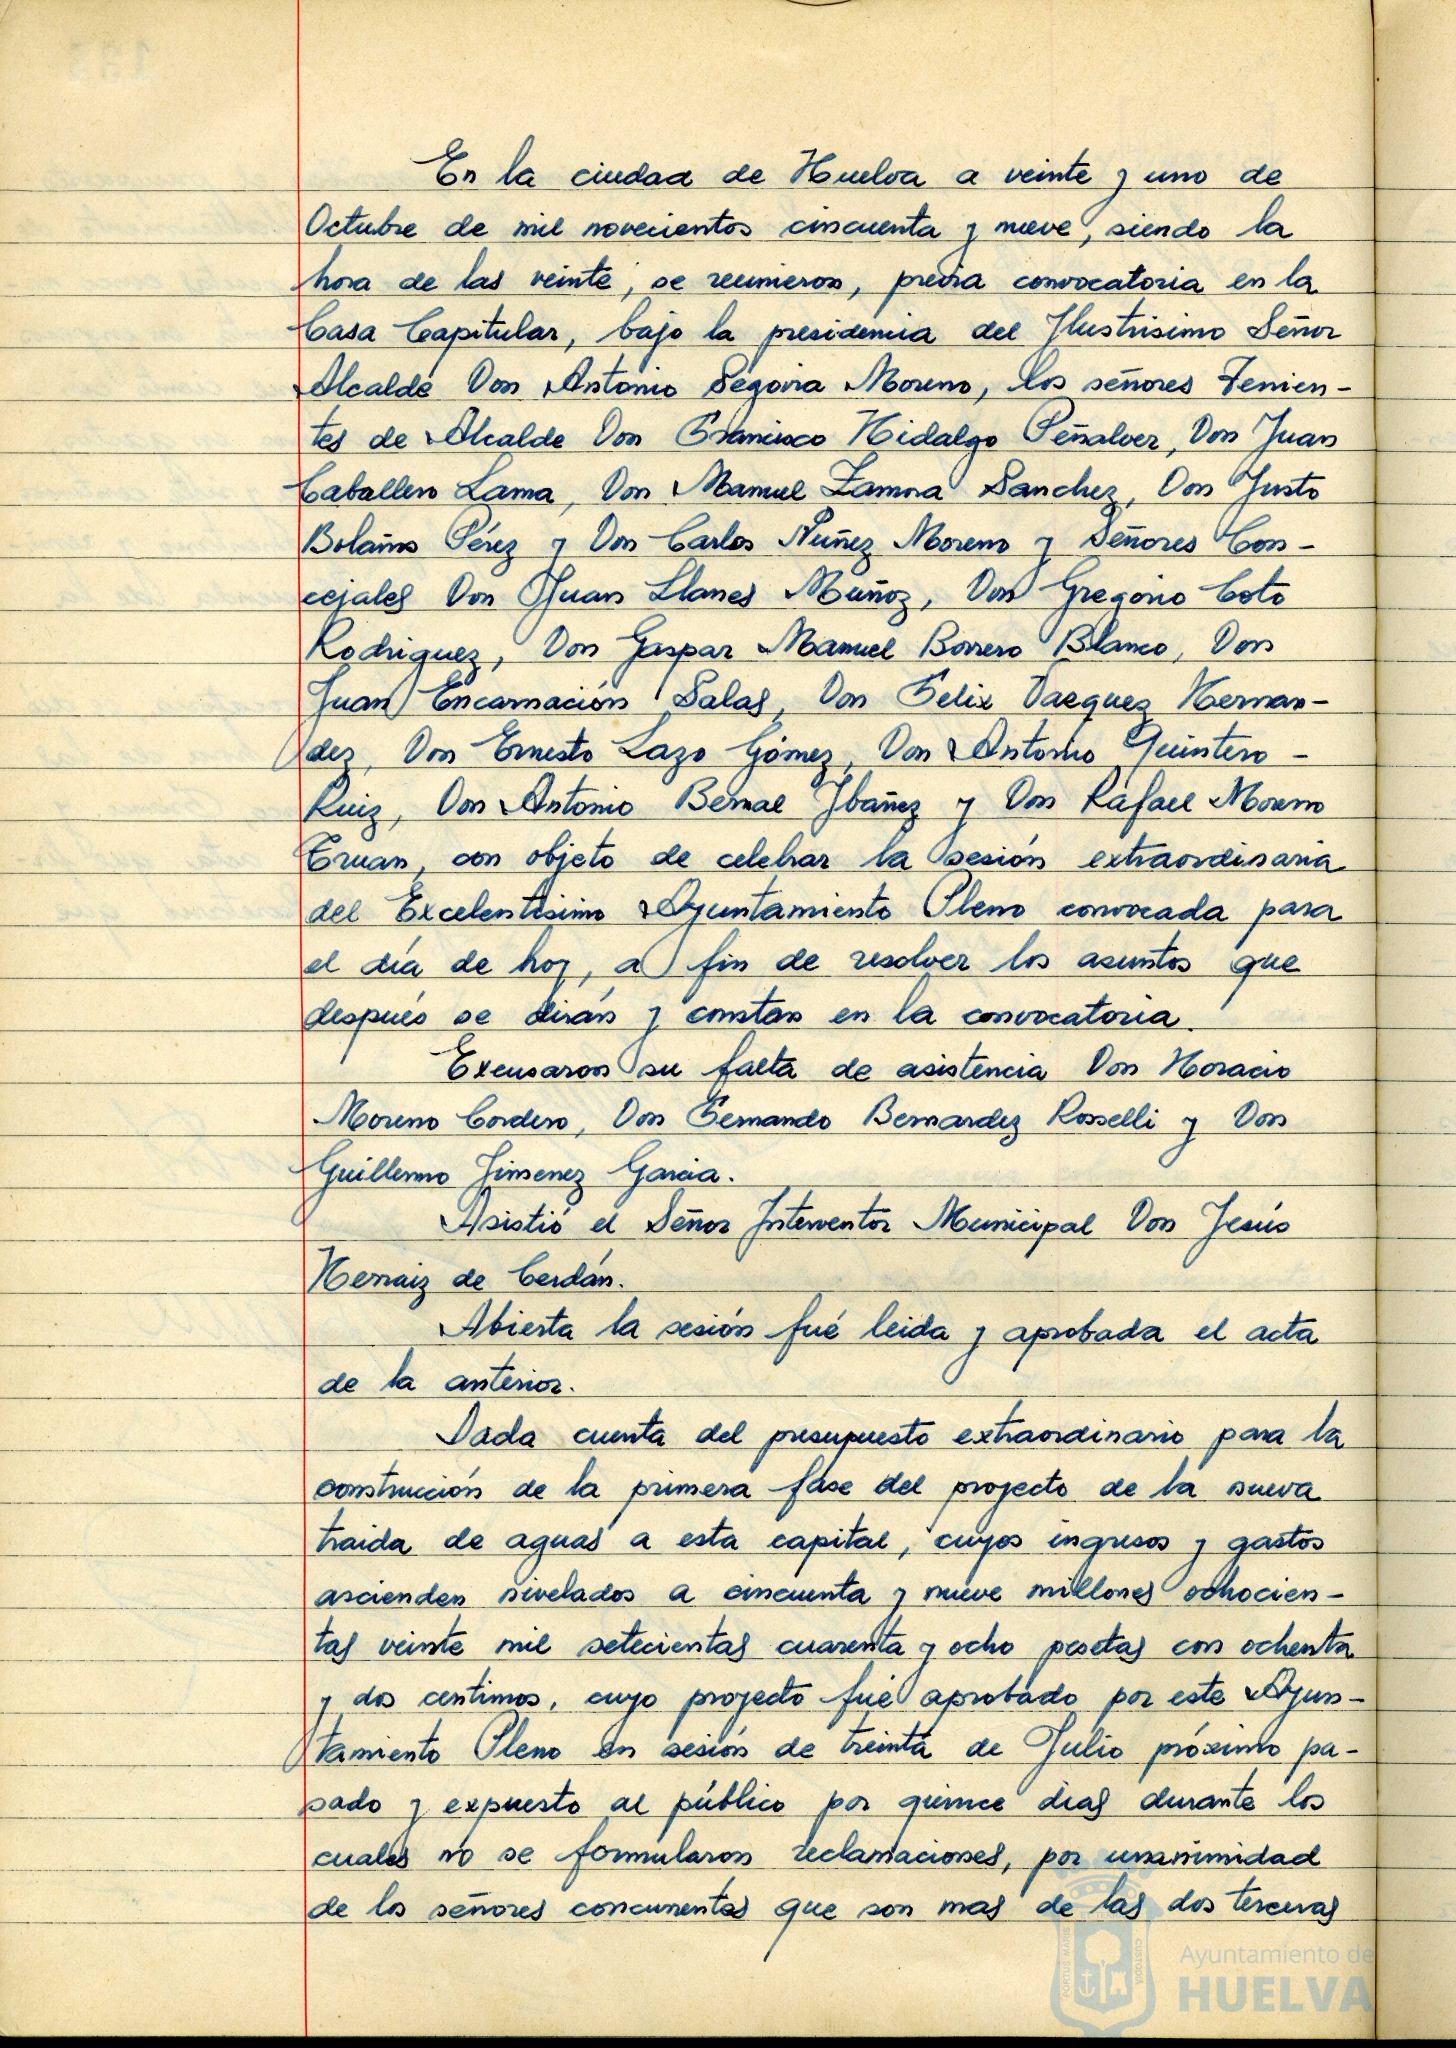 En la ciudad de Huelva a veinte y uno de
Octubre de mil novecientos cincuenta y nueve, siendo la
hora de las veinte, se reunieron, previa convocatoria en la
Casa Capitular, bajo la presidencia del Ilustrisimo Señor
Alcalde Don Antonio Segovia Moreno, los señores Tenien-
tes de Alcalde Don Francisco Hidalgo Peñalver, Don Juan
Caballero Lama, Don Manuel Zamora Sanchez, Don Justo
Bolaños Pérez y Don Carlos Nuñez Moreno y Señores Con-
cejales Don Juan Llanes Muñoz, Don Gregorio Coto
Rodriguez, Don Gaspar Manuel Borrero Blanco, Don
Juan Encarnación Salas, Don Felix Vazquez Hernan-
dez, Don Ernesto Lazo Gómez, Don Antonio Quintero
Ruiz, Don Antonio Bernal Ibañez y Don Rafael Moreno
Truan, con objeto de celebrar la sesión extraordinaria
del Excelentisimo Ayuntamiento Pleno convocada para
el día de hoy, a fin de resolver los asuntos que
después se dirán y constan en la convocatoria.
Excusaron su falta de asistencia Don Horacio
Moreno Cordero, Don Fernando Bernardez Rosselli y Don
Guillermo Jimenez Garcia.
Asistió el Señor Interventor Municipal Don Jesús
Hernaiz de Cerdán.
Abierta la sesión fué leida y aprobada el acta
de la anterior.
Dada cuenta del presupuesto extraordinario para la
construcción de la primera fase del proyecto de la nueva
traida de aguas a esta capital, cuyos ingresos y gastos
ascienden nivelados a cincuenta y nueve millones ochocien-
tas veinte mil setecientas cuarenta y ocho pesetas con ochenta
y dos centimos, cuyo proyecto fué aprobado por este Ayun-
tamiento Pleno en sesión de treinta de Julio próximo pa-
sado y expuesto al público por quince dias durante los
cuales no se formularon reclamaciones, por unanimidad
de los señores concurrentes que son mas de las dos terceras
PORTUS MARIS CUSTODIA
Ayuntamiento de
HUELVA